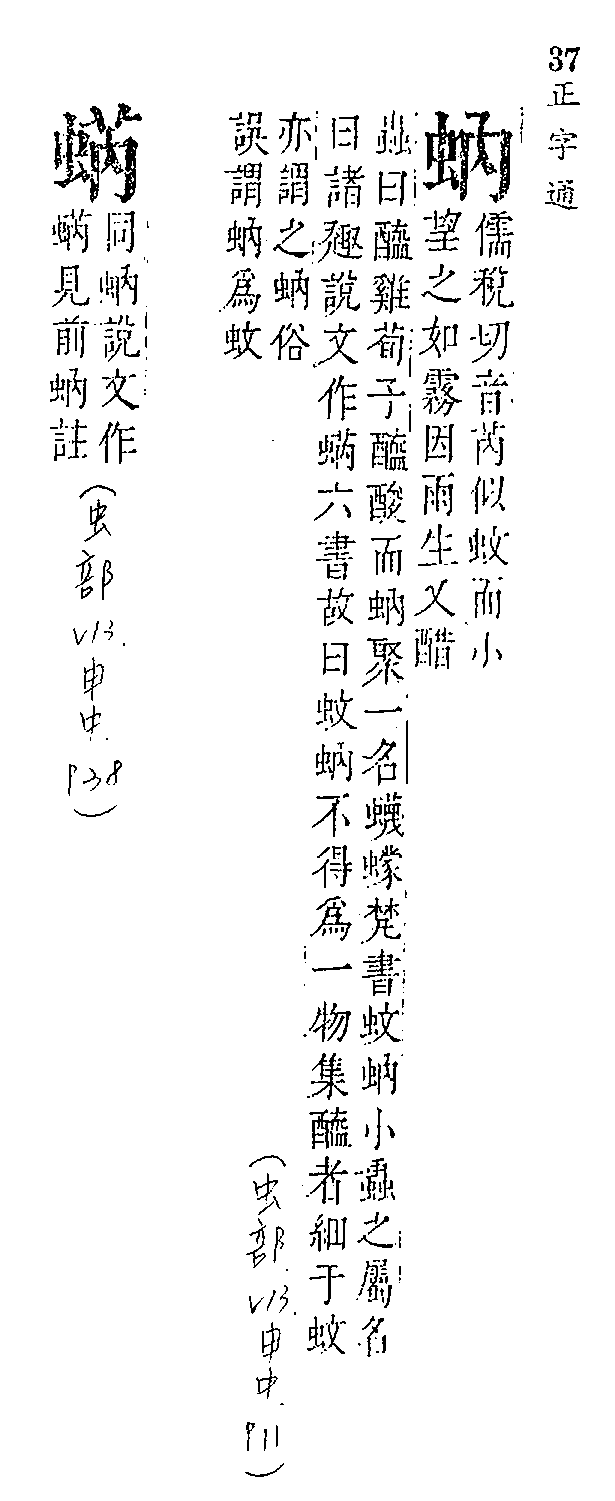 37正字通
蚋
儒稅切音芮似蚊而小
望之如霧因雨生又醋
蟲曰醯雞荀子醯酸而蚋聚一名蠛蠓梵書蚊蚋小蟲之屬名
曰諸趣說文作蜹六書故曰蚊蚋不得爲一物集醯者細于蚊
亦謂之蚋俗
誤謂蚋爲蚊
(虫部.V13.申中.P11)
蜹
同蚋說文作
蜹見前蚋註
(虫部V13.申中.P38)